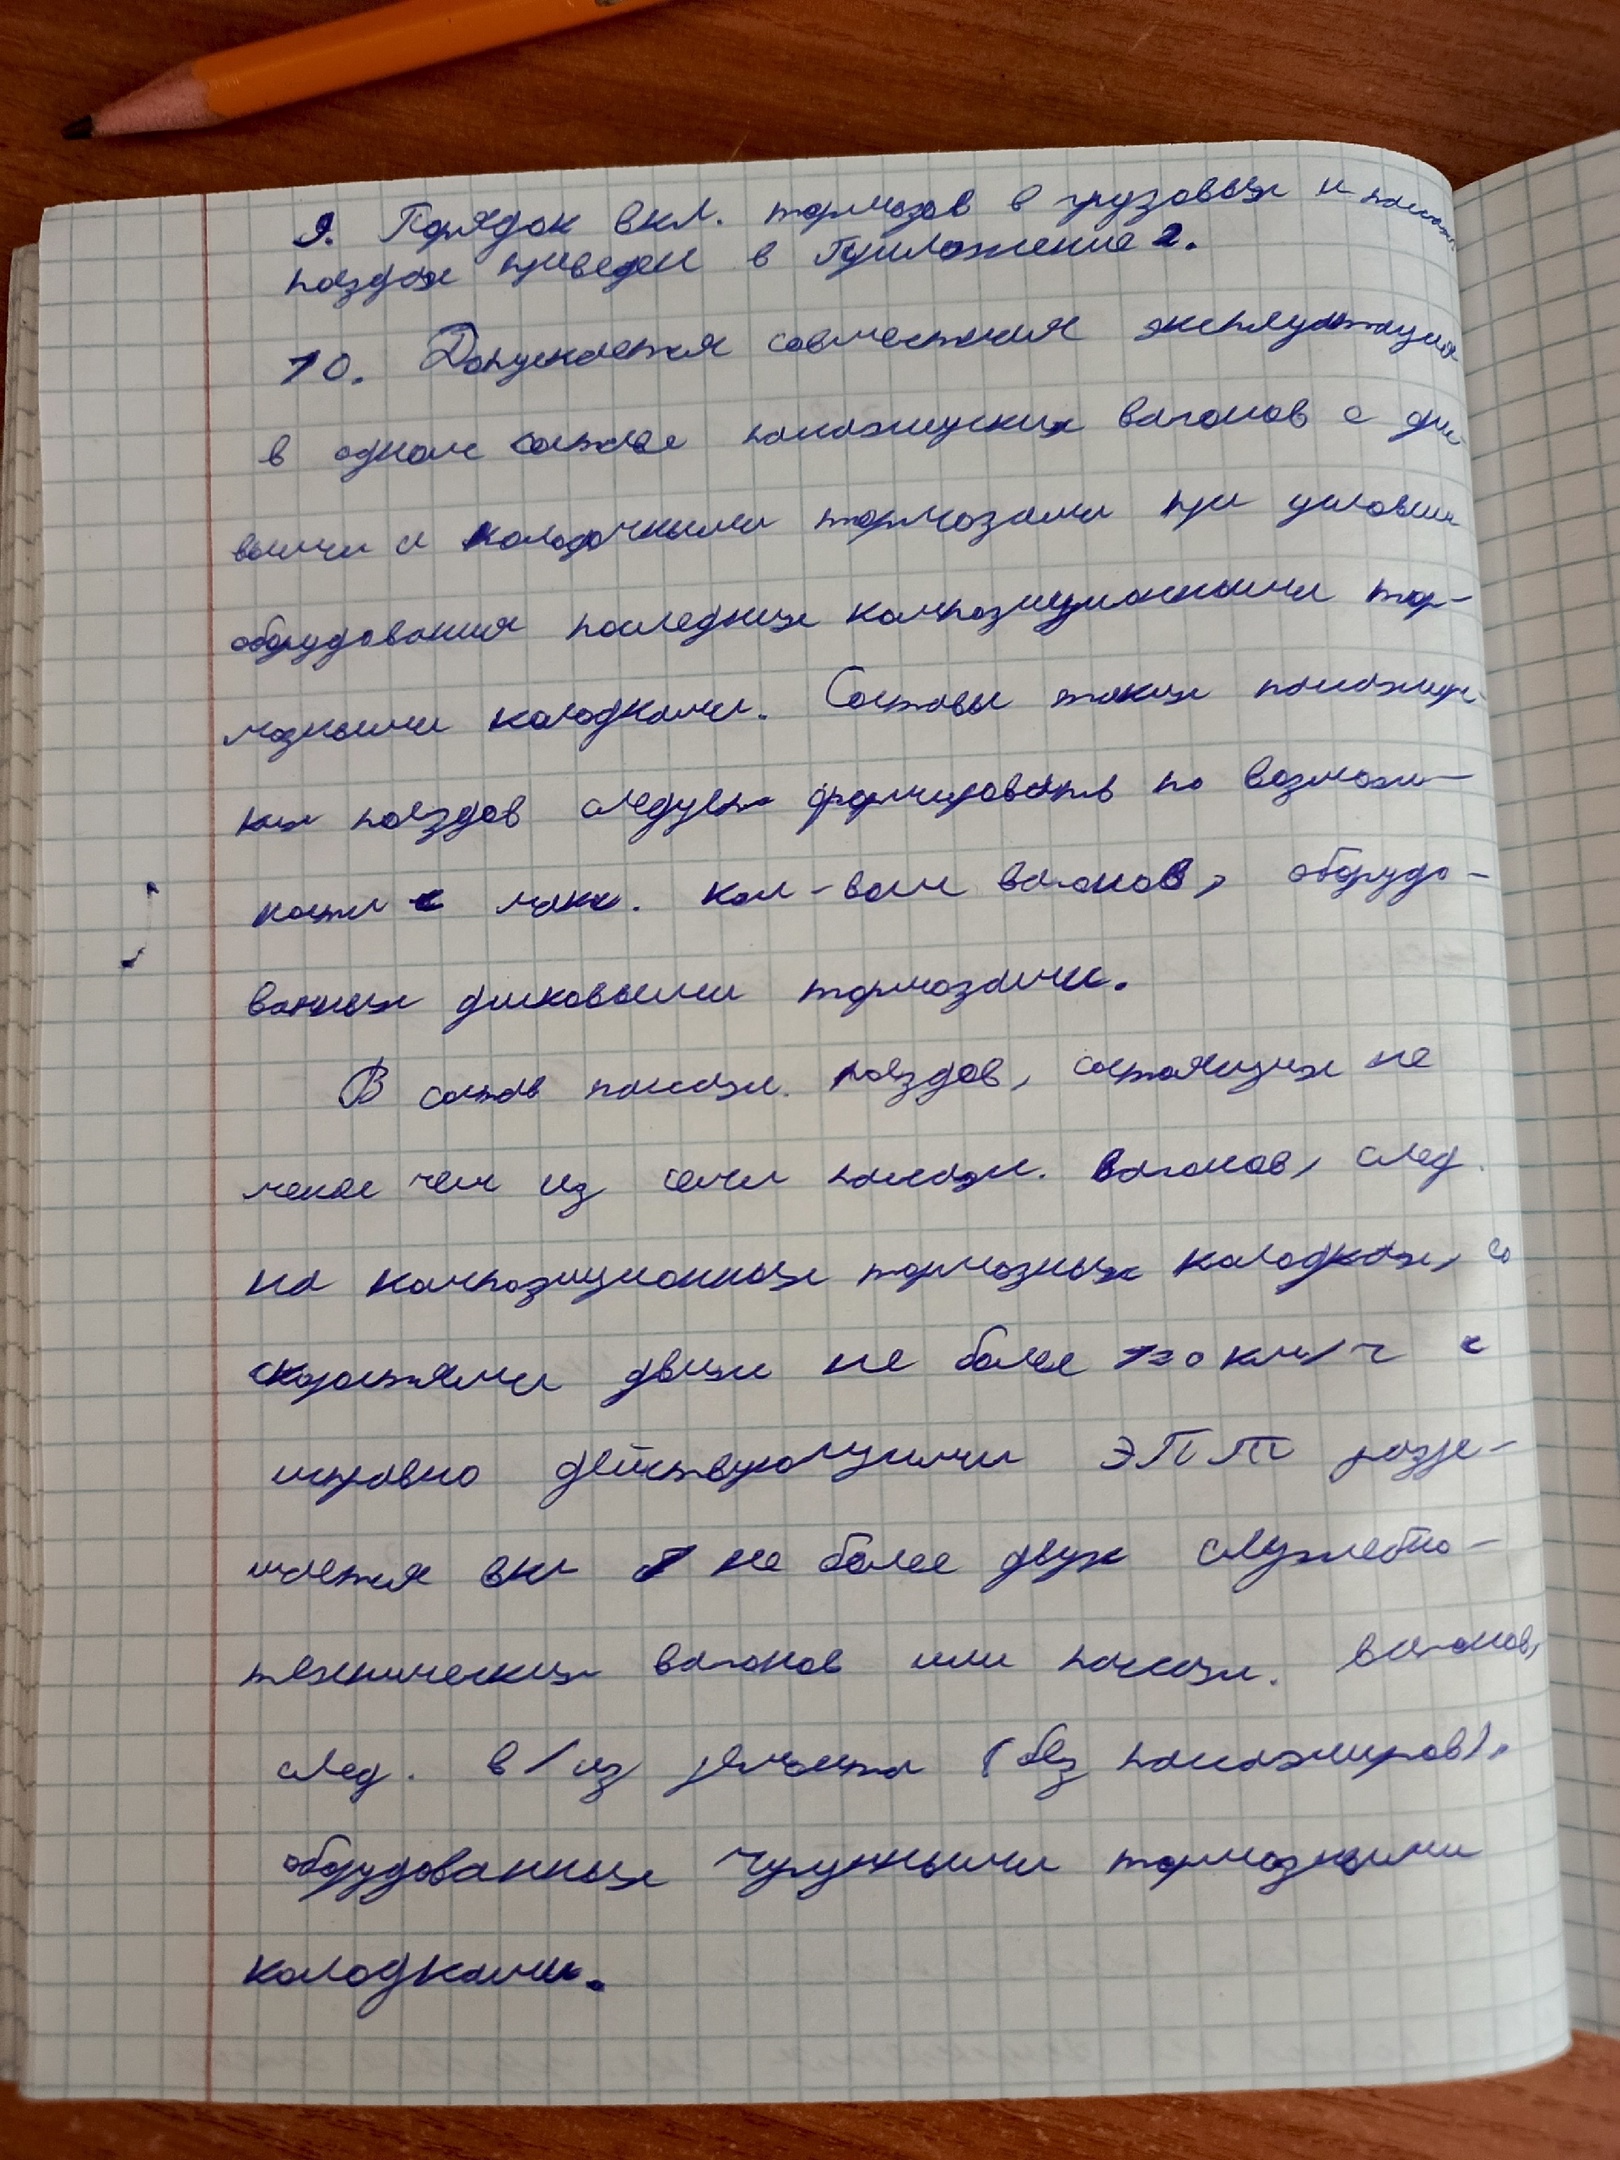 9. Порядок вкл. тормозов в грузовых и пассаж.
поездах приведен в Приложение 2.
10. Допускается совместная эксплуатация
в одном составе пассажирских вагонов с дис-
выми и колодочными тормозами при условии
оборудования последних композиционными тор-
мозными колодками. Составы таких пассажирс-
ких поездов следует формировать по возмож-
ности с макс. кол-вом вагонов, оборудо-
ванных дисковыми тормозами.
В состав пассаж. поездов, состоящих не
менее чем из семи пассаж. вагонов, след.
на композиционных тормозных колодках, со
скоростями движ не более 120 км/ч с
исправно действующими ЭПТ разре-
шается вкл не более двух служебно-
технических вагонов или пассаж. вагонов,
след. в/из ремонта (без пассажиров),
оборудованных чугунными тормозными
колодками.